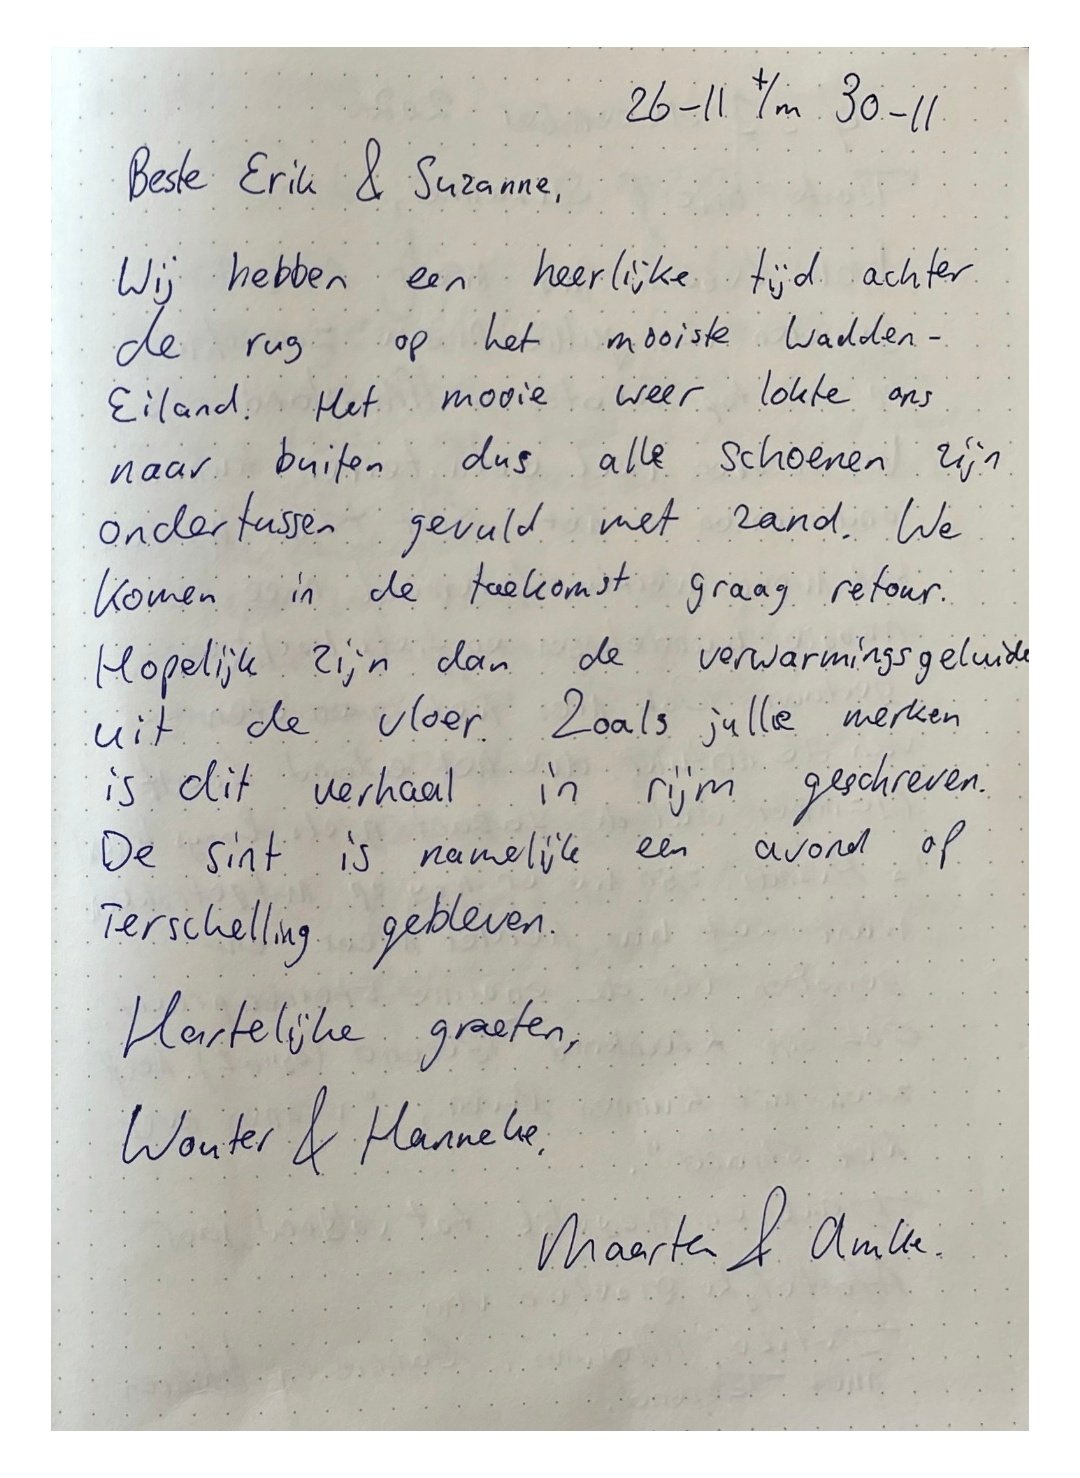 26-11 t/m 30-11
Beste Erik & Suzanne,
Wij hebben een heerlijke tijd achter
de rug op het mooiste Wadden-
Eiland. Het mooie weer lokte ons
naar buiten dus alle schoenen zijn
ondertussen gevuld met zand. We
komen in de toekomst graag retour.
Hopelijk zijn dan de verwarmingsgeluide
uit de vloer. Zoals jullie merken
is dit verhaal in rijm geschreven.
De sint is namelijk een avond op
Terschelling gebleven.
Hartelijke groeten,
Wouter & Hanneke.
Maarten &